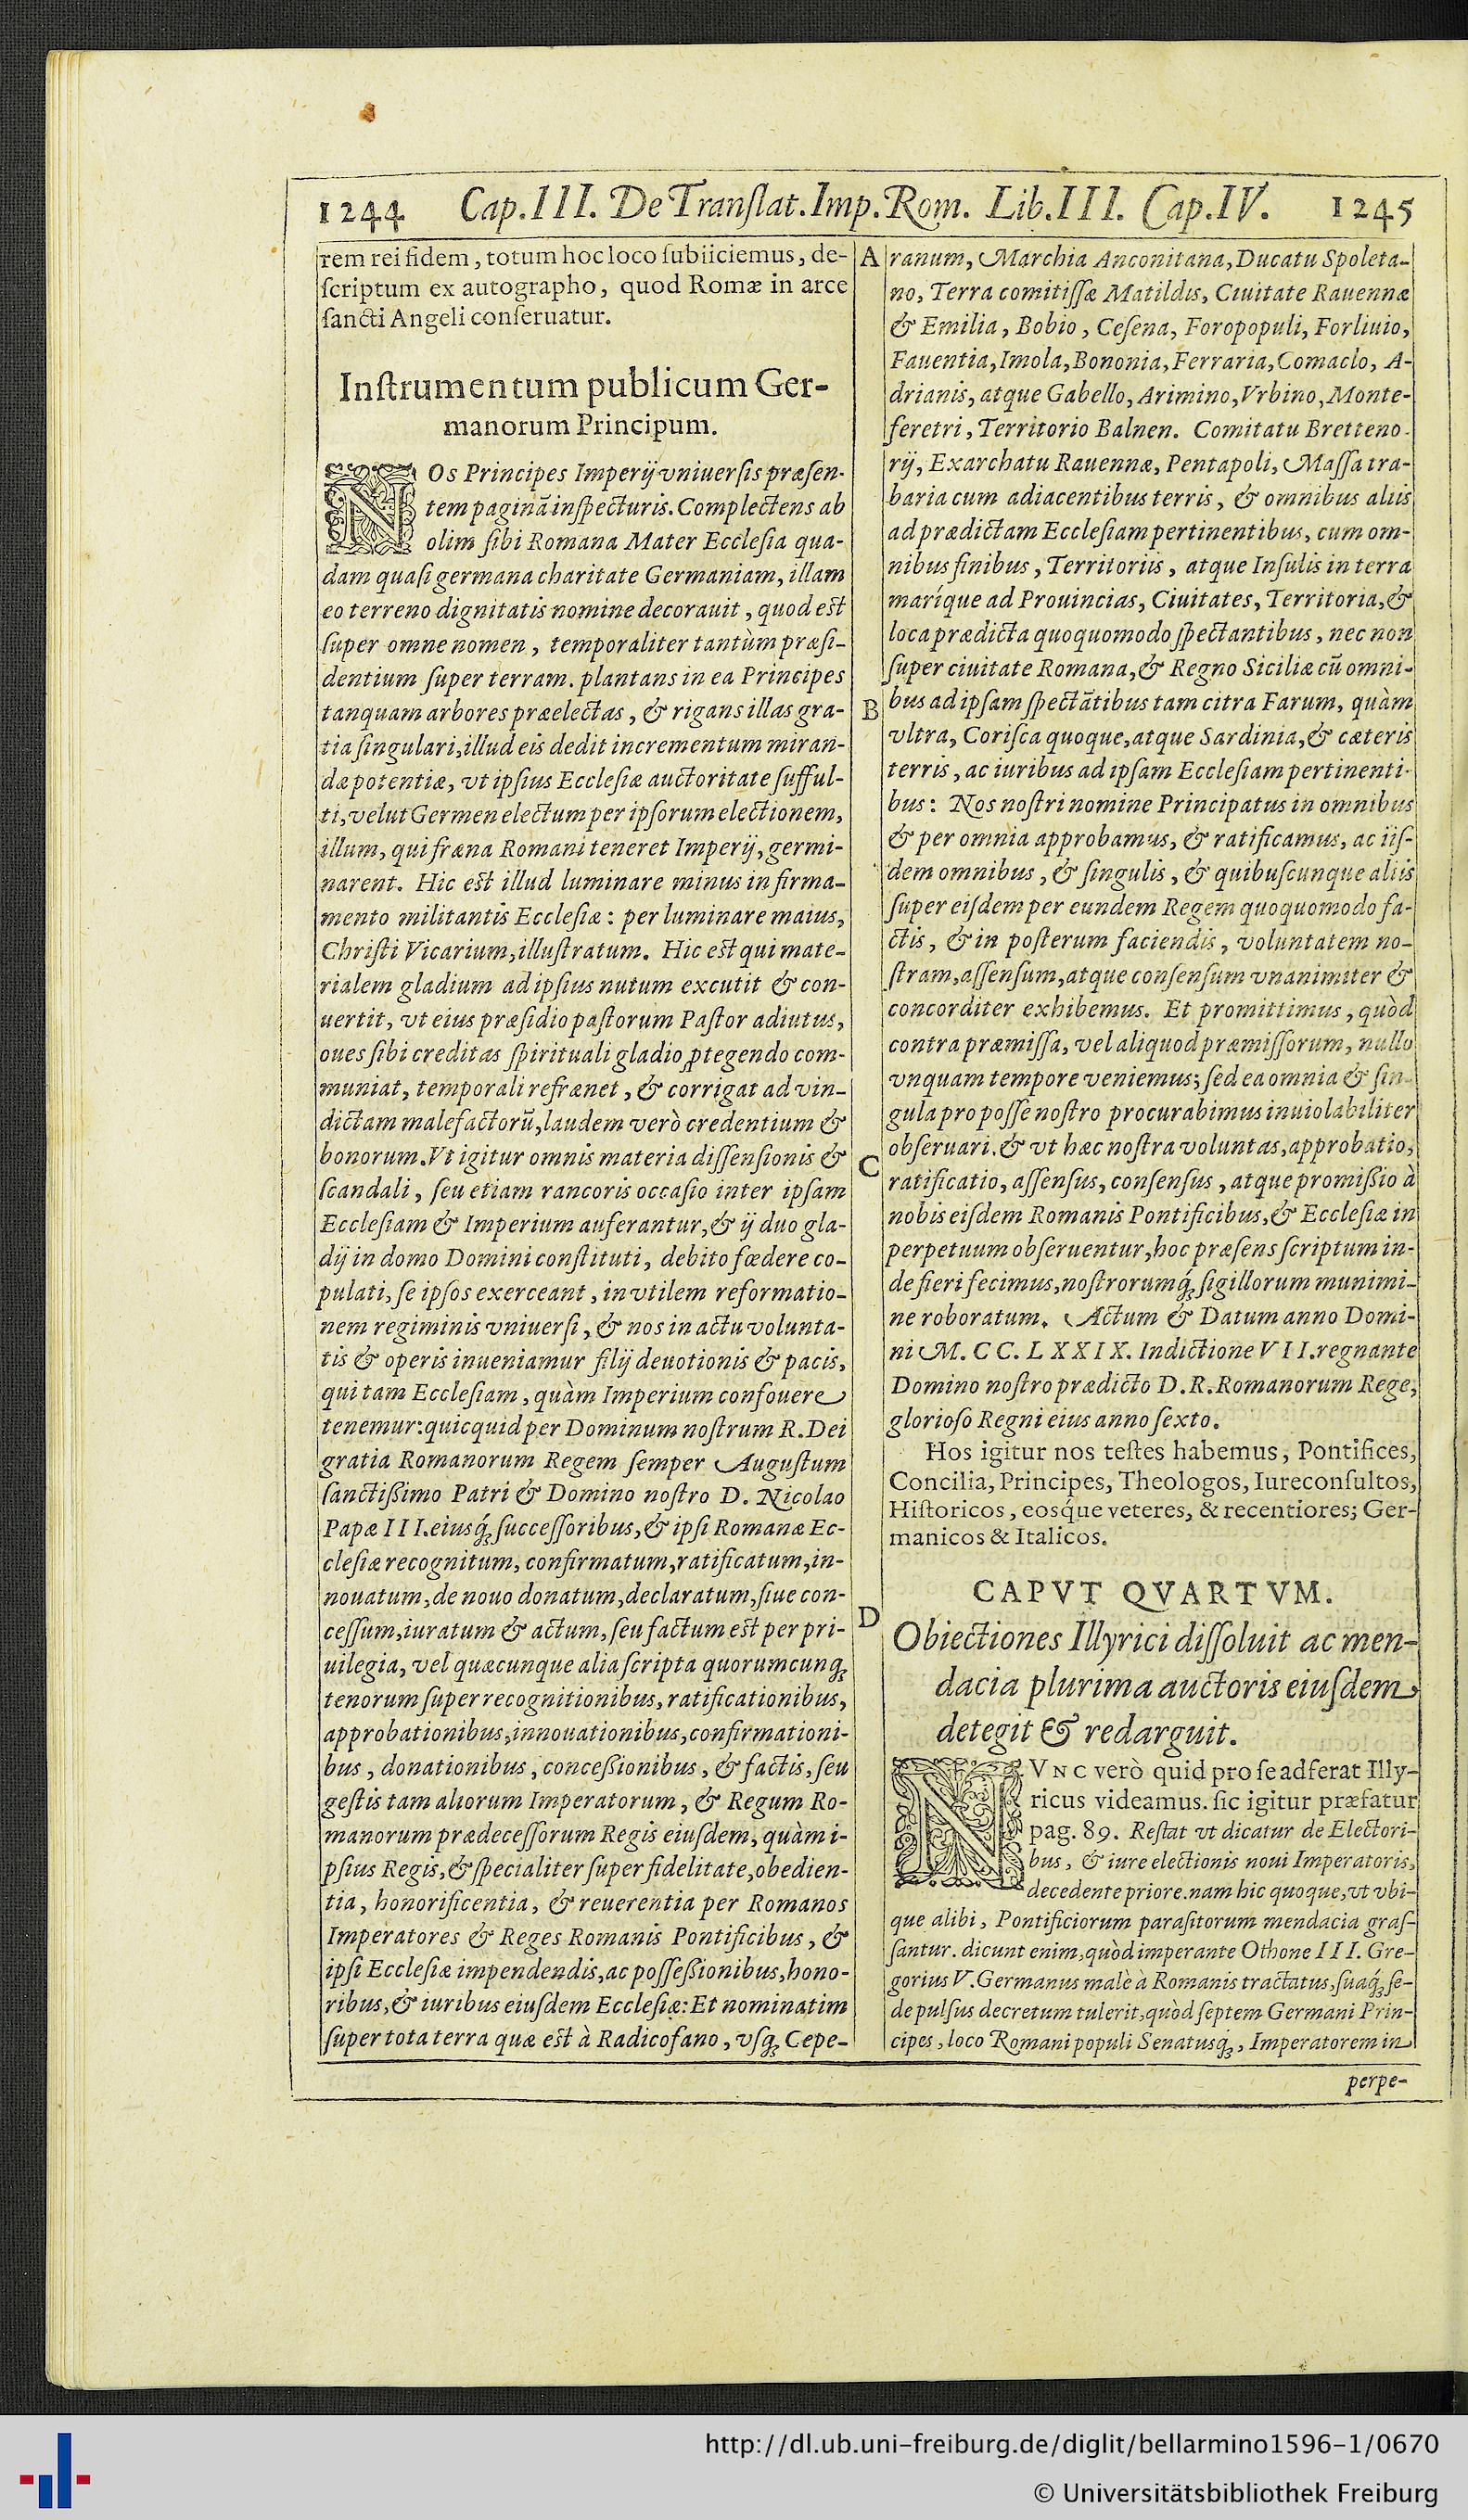 1244 Cap. III. De Tranſlat. Imp. Rom. Lib. III. Cap. IV. 1245
rem rei fidem, totum hoc loco ſubiiciemus, de-
ſcriptum ex autographo, quod Romæ in arce
ſancti Angeli conſeruatur.
Inſtrumentum publicum Ger-
manorum Principum.
NOs Principes Imperij vniuerſis præſen-
tem paginā inſpecturis. Complectens ab
olim ſibi Romana Mater Eccleſia qua-
dam quaſi germana charitate Germaniam, illam
eo terreno dignitatis nomine decorauit, quod eſt
ſuper omne nomen, temporaliter tantùm præſi-
dentium ſuper terram. plantans in ea Principes
tanquam arbores præelectas, & rigans illas gra-
tia ſingulari, illud eis dedit incrementum miran-
dæ potentiæ, vt ipſius Eccleſiæ auctoritate ſufful-
ti, velut Germen electum per ipſorum electionem,
illum, qui fræna Romani teneret Imperij, germi-
narent. Hic eſt illud luminare minus in firma-
mento militantis Eccleſiæ: per luminare maius,
Chriſti Vicarium, illuſtratum. Hic eſt qui mate-
rialem gladium ad ipſius nutum excutit & con-
uertit, vt eius præſidio paſtorum Paſtor adiutus,
oues ſibi creditas ſpirituali gladio ꝓtegendo com-
muniat, temporali refrænet, & corrigat ad vin-
dictam malefactorū, laudem verò credentium &
bonorum. Vt igitur omnis materia diſſenſionis &
ſcandali, ſeu etiam rancoris occaſio inter ipſam
Eccleſiam & Imperium auferantur, & ij duo gla-
dij in domo Domini conſtituti, debito fœdere co-
pulati, ſe ipſos exerceant, in vtilem reformatio-
nem regiminis vniuerſi, & nos in actu volunta-
tis & operis inueniamur filij deuotionis & pacis,
qui tam Eccleſiam, quàm Imperium confouere
tenemur: quicquid per Dominum noſtrum R. Dei
gratia Romanorum Regem ſemper Auguſtum
ſanctißimo Patri & Domino noſtro D. Nicolao
Papæ III. eiusq́ꝫ ſucceſſoribus, & ipſi Romanæ Ec-
cleſiæ recognitum, confirmatum, ratificatum, in-
nouatum, de nouo donatum, declaratum, ſiue con-
ceſſum, iuratum & actum, ſeu factum eſt per pri-
uilegia, vel quæcunque alia ſcripta quorumcunqꝫ
tenorum ſuper recognitionibus, ratificationibus,
approbationibus, innouationibus, confirmationi-
bus, donationibus, conceßionibus, & factis, ſeu
geſtis tam aliorum Imperatorum, & Regum Ro-
manorum prædeceſſorum Regis eiuſdem, quàm i-
pſius Regis, & ſpecialiter ſuper fidelitate, obedien-
tia, honorificentia, & reuerentia per Romanos
Imperatores & Reges Romanis Pontificibus, &
ipſi Eccleſiæ impendendis, ac poſſeßionibus, hono-
ribus, & iuribus eiuſdem Eccleſiæ: Et nominatim
ſuper tota terra quæ eſt à Radicofano, vſqꝫ Cepe-
A
B
C
D
ranum, Marchia Anconitana, Ducatu Spoleta-
no, Terra comitiſſæ Matildis, Ciuitate Rauennæ
& Emilia, Bobio, Ceſena, Foropopuli, Forliuio,
Fauentia, Imola, Bononia, Ferraria, Comaclo, A-
drianis, atque Gabello, Arimino, Vrbino, Monte-
feretri, Territorio Balnen. Comitatu Bretteno-
rij, Exarchatu Rauennæ, Pentapoli, Maſſa tra-
baria cum adiacentibus terris, & omnibus aliis
ad prædictam Eccleſiam pertinentibus, cum om-
nibus finibus, Territoriis, atque Inſulis in terra
maríque ad Prouincias, Ciuitates, Territoria, &
loca prædicta quoquomodo ſpectantibus, nec non
ſuper ciuitate Romana, & Regno Siciliæ cū omni-
bus ad ipſam ſpectātibus tam citra Farum, quàm
vltra, Coriſca quoque, atque Sardinia, & cæteris
terris, ac iuribus ad ipſam Eccleſiam pertinenti-
bus: Nos noſtri nomine Principatus in omnibus
& per omnia approbamus, & ratificamus, ac iiſ-
dem omnibus, & ſingulis, & quibuſcunque aliis
ſuper eiſdem per eundem Regem quoquomodo fa-
ctis, & in poſterum faciendis, voluntatem no-
ſtram, aſſenſum, atque conſenſum vnanimiter &
concorditer exhibemus. Et promittimus, quòd
contra præmiſſa, vel aliquod præmiſſorum, nullo
vnquam tempore veniemus; ſed ea omnia & ſin-
gula pro poſſe noſtro procurabimus inuiolabiliter
obſeruari. & vt hæc noſtra voluntas, approbatio,
ratificatio, aſſenſus, conſenſus, atque promißio à
nobis eiſdem Romanis Pontificibus, & Eccleſiæ in
perpetuum obſeruentur, hoc præſens ſcriptum in-
de fieri fecimus, noſtrorumq́ꝫ ſigillorum munimi-
ne roboratum. Actum & Datum anno Domi-
ni M. CC. LXXIX. Indictione VII. regnante
Domino noſtro prædicto D. R. Romanorum Rege,
glorioſo Regni eius anno ſexto.
Hos igitur nos teſtes habemus, Pontifices,
Concilia, Principes, Theologos, Iureconſultos,
Hiſtoricos, eosq́ue veteres, & recentiores; Ger-
manicos & Italicos.
CAPVT QVARTVM.
Obiectiones Illyrici diſſoluit ac men-
dacia plurima auctoris eiuſdem
detegit & redarguit.
NVNC verò quid pro ſe adferat Illy-
ricus videamus. ſic igitur præfatur
pag. 89. Reſtat vt dicatur de Electori-
bus, & iure electionis noui Imperatoris,
decedente priore. nam hic quoque, vt vbi-
que alibi, Pontificiorum paraſitorum mendacia graſ-
ſantur. dicunt enim, quòd imperante Othone III. Gre-
gorius V. Germanus malè à Romanis tractatus, ſuaq́ꝫ ſe-
de pulſus decretum tulerit, quòd ſeptem Germani Prin-
cipes, loco Romani populi Senatusq́ꝫ, Imperatorem in
perpe-
http://dl.ub.uni-freiburg.de/diglit/bellarmino1596-1/0670
© Universitätsbibliothek Freiburg